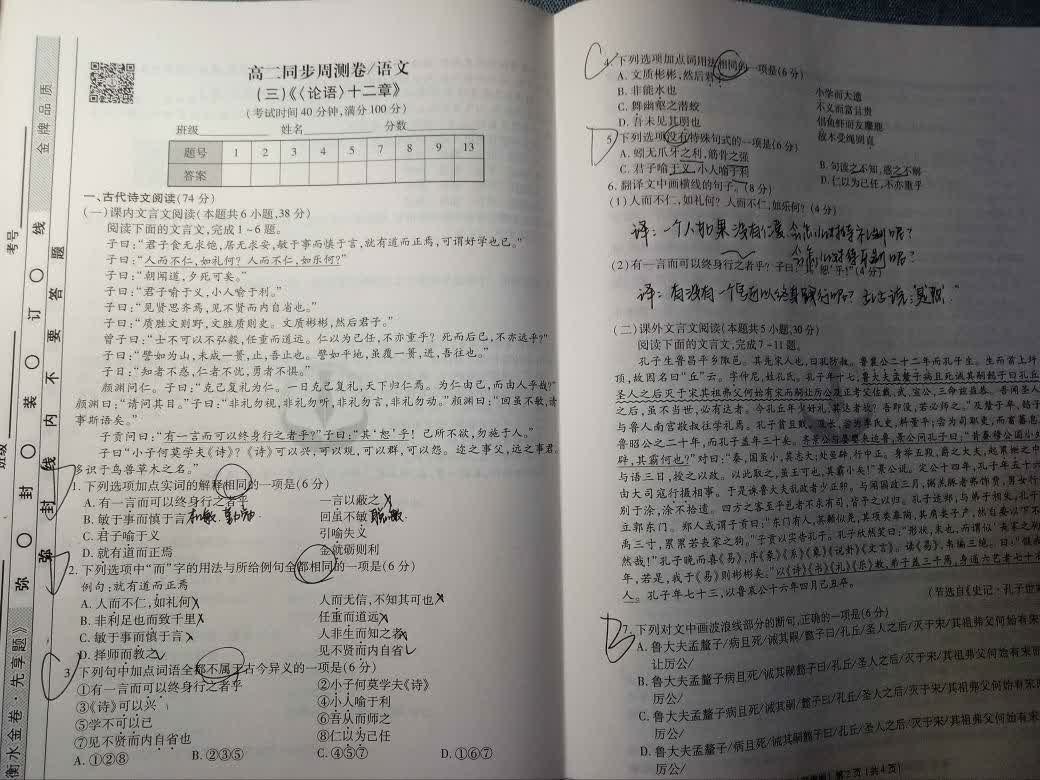 金牌品质
考号
班级
弥 封 装 订 线
弥 封 线 内 不 要 答 题
衡水金卷·先享题》
高二同步周测卷/语文
(三)《〈论语〉十二章》
(考试时间40分钟,满分100分)
班级 姓名 分数
题号 1 2 3 4 5 7 8 9 13
答案
一、古代诗文阅读(74分)
(一)课内文言文阅读(本题共6小题,38分)
阅读下面的文言文,完成1~6题。
子曰:“君子食无求饱,居无求安,敏于事而慎于言,就有道而正焉,可谓好学也已。”
子曰:“人而不仁,如礼何?人而不仁,如乐何?”
子曰:“朝闻道,夕死可矣。”
子曰:“君子喻于义,小人喻于利。”
子曰:“见贤思齐焉,见不贤而内自省也。”
子曰:“质胜文则野,文胜质则史。文质彬彬,然后君子。”
曾子曰:“士不可以不弘毅,任重而道远。仁以为己任,不亦重乎?死而后已,不亦远乎?”
子曰:“譬如为山,未成一篑,止,吾止也。譬如平地,虽覆一篑,进,吾往也。”
子曰:“知者不惑,仁者不忧,勇者不惧。”
颜渊问仁。子曰:“克己复礼为仁。一日克己复礼,天下归仁焉。为仁由己,而由人乎哉?”
颜渊曰:“请问其目。”子曰:“非礼勿视,非礼勿听,非礼勿言,非礼勿动。”颜渊曰:“回虽不敏,请
事斯语矣。”
子贡问曰:“有一言而可以终身行之者乎?”子曰:“其‘恕’乎!己所不欲,勿施于人。”
子曰“小子何莫学夫《诗》?《诗》可以兴,可以观,可以群,可以怨。迩之事父,远之事君,
多识于鸟兽草木之名。”
1. 下列选项加点实词的解释相同的一项是(6分)
A. 有一言而可以终身行之者乎 一言以蔽之
B. 敏于事而慎于言 回虽不敏 聪敏
C. 君子喻于义 引喻失义
D. 就有道而正焉 金就砺则利
2. 下列选项中“而”字的用法与所给例句全都相同的一项是(6分)
例句:就有道而正焉
A. 人而不仁,如礼何 人而无信,不知其可也
B. 非利足也而致千里 任重而道远
C. 敏于事而慎于言 人非生而知之者
D. 择师而教之 见不贤而内自省
3. 下列句中加点词语全都不属于古今异义的一项是(6分)
①有一言而可以终身行之者乎 ②小子何莫学夫《诗》
③《诗》可以兴 ④小人喻于利
⑤学不可以已 ⑥吾从而师之
⑦见不贤而内自省也 ⑧仁以为己任
A. ①②⑧ B. ②③⑤ C. ④⑤⑦ D. ①⑥⑦
C
4. 下列选项加点词用法相同的一项是(6分)
A. 文质彬彬,然后君子 小学而大遗
B. 非能水也 不义而富且贵
C. 舞幽壑之潜蛟 侣鱼虾而友麋鹿
D. 吾未见其明也 故木受绳则直
D
5. 下列选项没有特殊句式的一项是(6分)
A. 蚓无爪牙之利,筋骨之强 B. 句读之不知,惑之不解
C. 君子喻于义,小人喻于利 D. 仁以为己任,不亦重乎
6. 翻译文中画横线的句子。(8分)
(1)人而不仁,如礼何?人而不仁,如乐何?(4分)
译:一个人如果没有仁爱
(2)有一言而可以终身行之者乎?子曰:“其‘恕’乎!”(4分)
译:有没有一个
(二)课外文言文阅读(本题共5小题,30分)
阅读下面的文言文,完成7~11题。
孔子生鲁昌平乡陬邑。其先宋人也,曰孔防叔。鲁襄公二十二年而孔子生。生而首上圩
顶,故因名曰“丘”云。字仲尼,姓孔氏。孔子年十七,鲁大夫孟釐子病且死诫其嗣懿子曰孔丘
圣人之后灭于宋其祖弗父何始有宋而嗣让厉公及正考父佐戴、武、宣公,三命兹益恭。吾闻圣人
之后,虽不当世,必有达者。今孔丘年少好礼,其达者欤?吾即没,若必师之。”及釐子卒,懿子
与鲁人南宫敬叔往学礼焉。孔子贫且贱。及长,尝为季氏史,料量平;尝为司职吏,而畜蕃息。
鲁昭公之二十年,而孔子盖年三十矣。齐景公与晏婴来适鲁,景公问孔子曰:“昔秦穆公国小处
辟,其霸何也?”对曰:“秦,国虽小,其志大;处虽辟,行中正。身举五羖,爵之大夫,起累绁之中,
与语三日,授之以政。以此取之,虽王可也,其霸小矣!”景公说。定公十四年,孔子年五十六,
由大司寇行摄相事。于是诛鲁大夫乱政者少正卯,与闻国政三月,粥羔豚者弗饰贾,男女行者
别于涂,涂不拾遗。四方之客至乎邑者不求有司,皆予之以归。孔子适郑,与弟子相失,孔子
立郭东门。郑人或谓子贡曰:“东门有人,其颡似尧,其项类皋陶,其肩类子产,然自要以下不
禹三寸,累累若丧家之狗。”子贡以实告孔子。孔子欣然笑曰:“形状,末也,而谓似‘丧家之狗
然哉!”孔子晚而喜《易》,序《彖》《系》《象》《说卦》《文言》。读《易》,韦编三绝。曰:“假我
年,若是,我于《易》则彬彬矣。”以《诗》《书》《礼》《乐》教,弟子盖三千焉,身通六艺者七十有
人。孔子年七十三,以鲁哀公十六年四月己丑卒。
(节选自《史记·孔子世家
7. 下列对文中画波浪线部分的断句,正确的一项是(6分)
A. 鲁大夫孟釐子/病且死/诫其嗣/懿子曰/孔丘/圣人之后/灭于宋/其祖弗父何始有宋
让厉公/
B. 鲁大夫孟釐子病且死/诫其嗣懿子曰/孔丘/圣人之后/灭于宋/其祖弗父何始有宋而
厉公/
C. 鲁大夫孟釐子病且死/诫其嗣/懿子曰/孔丘/圣人之后/灭于宋/其祖弗父何始有宋
厉公/
D. 鲁大夫孟釐子/病且死/诫其嗣懿子曰/孔丘/圣人之后/灭于宋/其祖弗父何始有宋
厉公/
第2页(共4页)